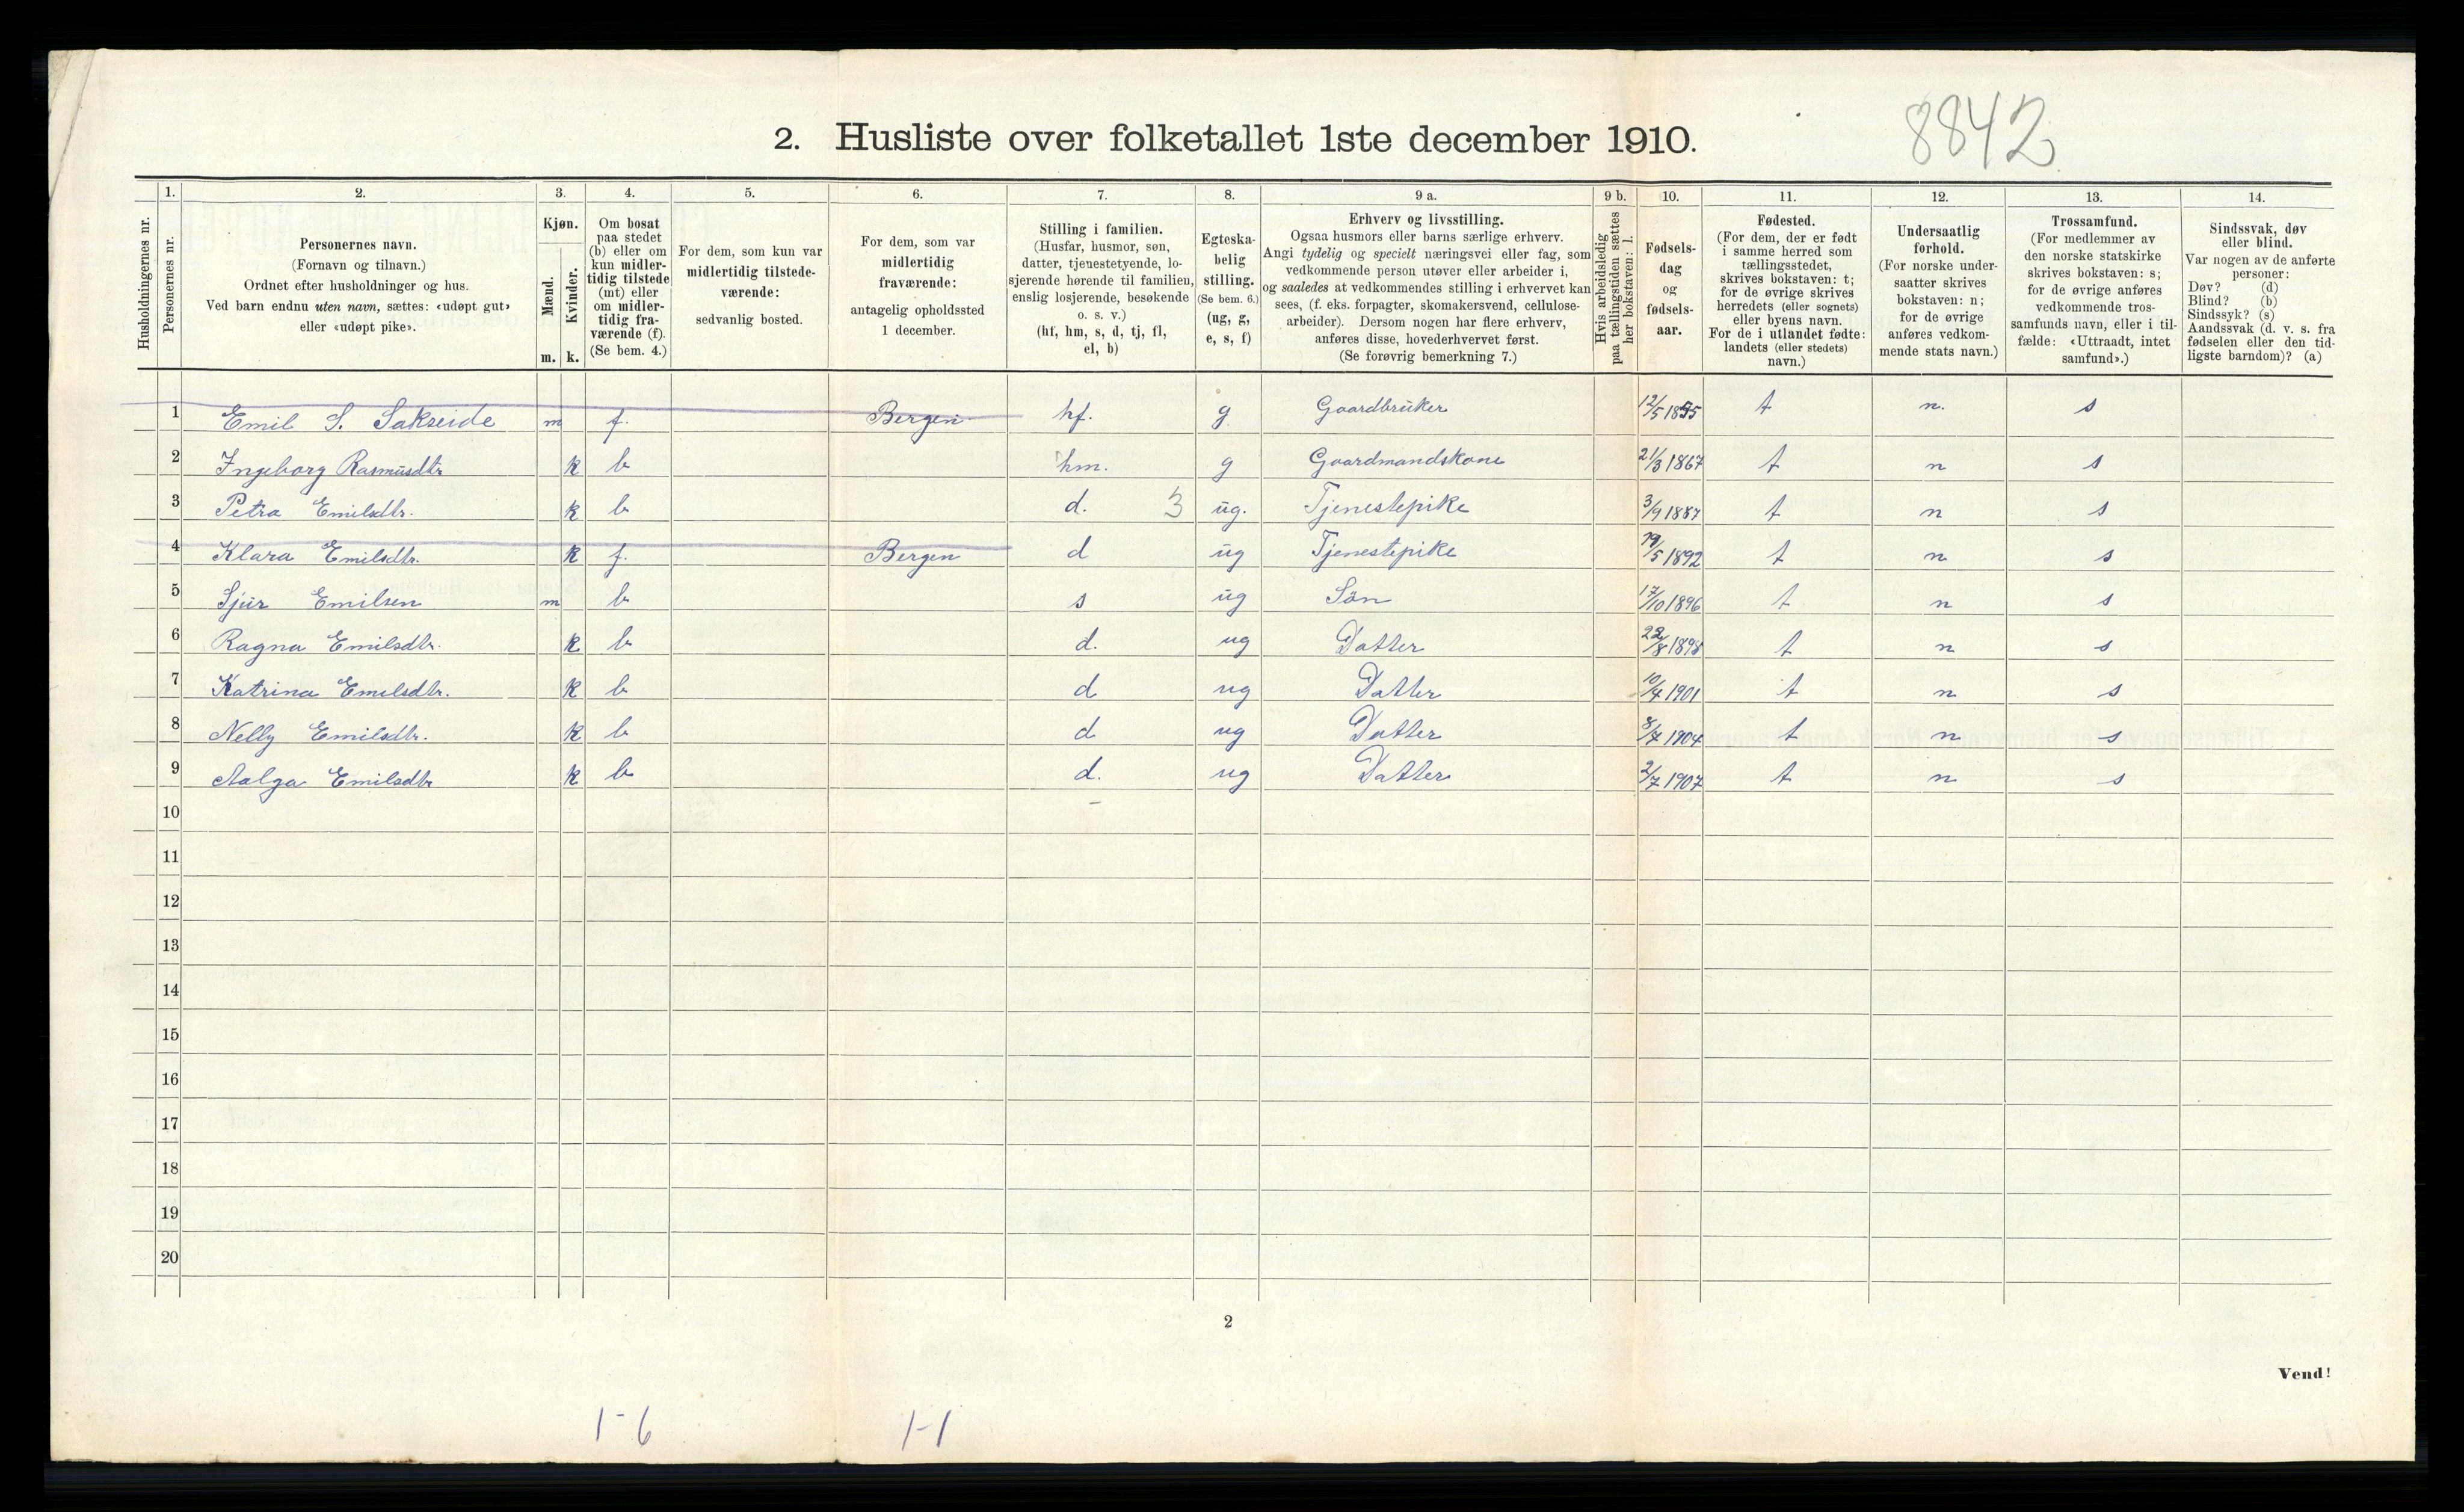 8842
2. Husliste over folketallet 1ste december 1910.
Husholdningernes nr.
1.
Personernes nr.
2.
Personernes navn.
(Fornavn og tilnavn.)
Ordnet efter husholdninger og hus.
Ved barn endnu uten navn, sættes: «udøpt gut»
eller «udøpt pike».
3.
Kjøn.
Mænd.
Kvinder.
m. k.
4.
Om bosat
paa stedet
(b) eller om
kun midler-
tidig tilstede
(mt) eller
om midler-
tidig fra-
værende (f).
(Se bem. 4.)
5.
For dem, som kun var
midlertidig tilstede-
værende:
sedvanlig bosted.
6.
For dem, som var
midlertidig
fraværende:
antagelig opholdssted
1 december.
7.
Stilling i familien.
(Husfar, husmor, søn,
datter, tjenestetyende, lo-
sjerende hørende til familien,
enslig losjerende, besøkende
o. s. v.)
(hf, hm, s, d, tj, fl,
el, b)
8.
Egteska-
belig
stilling.
(Se bem. 6.)
(ug, g,
e, s, f)
9 a.
Erhverv og livsstilling.
Ogsaa husmors eller barns særlige erhverv.
Angi tydelig og specielt næringsvei eller fag, som
vedkommende person utøver eller arbeider i,
og saaledes at vedkommendes stilling i erhvervet kan
sees, (f. eks. forpagter, skomakersvend, cellulose-
arbeider). Dersom nogen har flere erhverv,
anføres disse, hovederhvervet først.
(Se forøvrig bemerkning 7.)
9 b.
Hvis arbeidsledig
paa tællingstiden sættes
her bokstaven: l.
10.
Fødsels-
dag
og
fødsels-
aar.
11.
Fødested.
(For dem, der er født
i samme herred som
tællingsstedet,
skrives bokstaven: t;
for de øvrige skrives
herredets (eller sognets)
eller byens navn.
For de i utlandet fødte:
landets (eller stedets)
navn.)
12.
Undersaatlig
forhold.
(For norske under-
saatter skrives
bokstaven: n;
for de øvrige
anføres vedkom-
mende stats navn.)
13.
Trossamfund.
(For medlemmer av
den norske statskirke
skrives bokstaven: s;
for de øvrige anføres
vedkommende tros-
samfunds navn, eller i til-
fælde: «Uttraadt, intet
samfund».)
14.
Sindssvak, døv
eller blind.
Var nogen av de anførte
personer:
Døv? (d)
Blind? (b)
Sindssyk? (s)
Aandssvak (d. v. s. fra
fødselen eller den tid-
ligste barndom)? (a)
1 Emil S. Sakseide m f. Bergen hf. g. Gaardbruker 12/5 1855 t n. s
2 Ingeborg Rasmusdtr k b hm. g Gaardmandskone 21/3 1867 t n s
3 Petra Emilsdtr. k b d. 3 ug. Tjenestepike 3/9 1887 t n s
4 Klara Emilsdtr. k f. Bergen d ug Tjenestepike 19/5 1892 t n s
5 Sjur Emilsen m b s ug Søn 17/10 1896 t n s
6 Ragna Emilsdtr. k b d. ug Datter 22/8 1898 t n s
7 Katrina Emilsdtr. k b d ug Datter 10/4 1901 t n s
8 Nelly Emilsdtr. k b d ug Datter 8/7 1904 t n s
9 Aalga Emilsdtr k b d. ug Datter 2/7 1907 t n s
10
11
12
13
14
15
16
17
18
19
20
2
Vend!
1-6 1-1